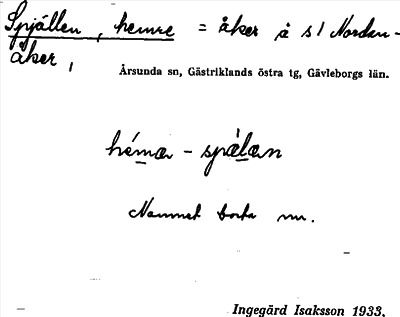 Spjällen, hemre = åker å s/ Nordan-
åker,
Årsunda sn, Gästriklands östra tg, Gävleborgs län.
héma - spälan
Namnet borta nu.
Ingegärd Isaksson 1933.